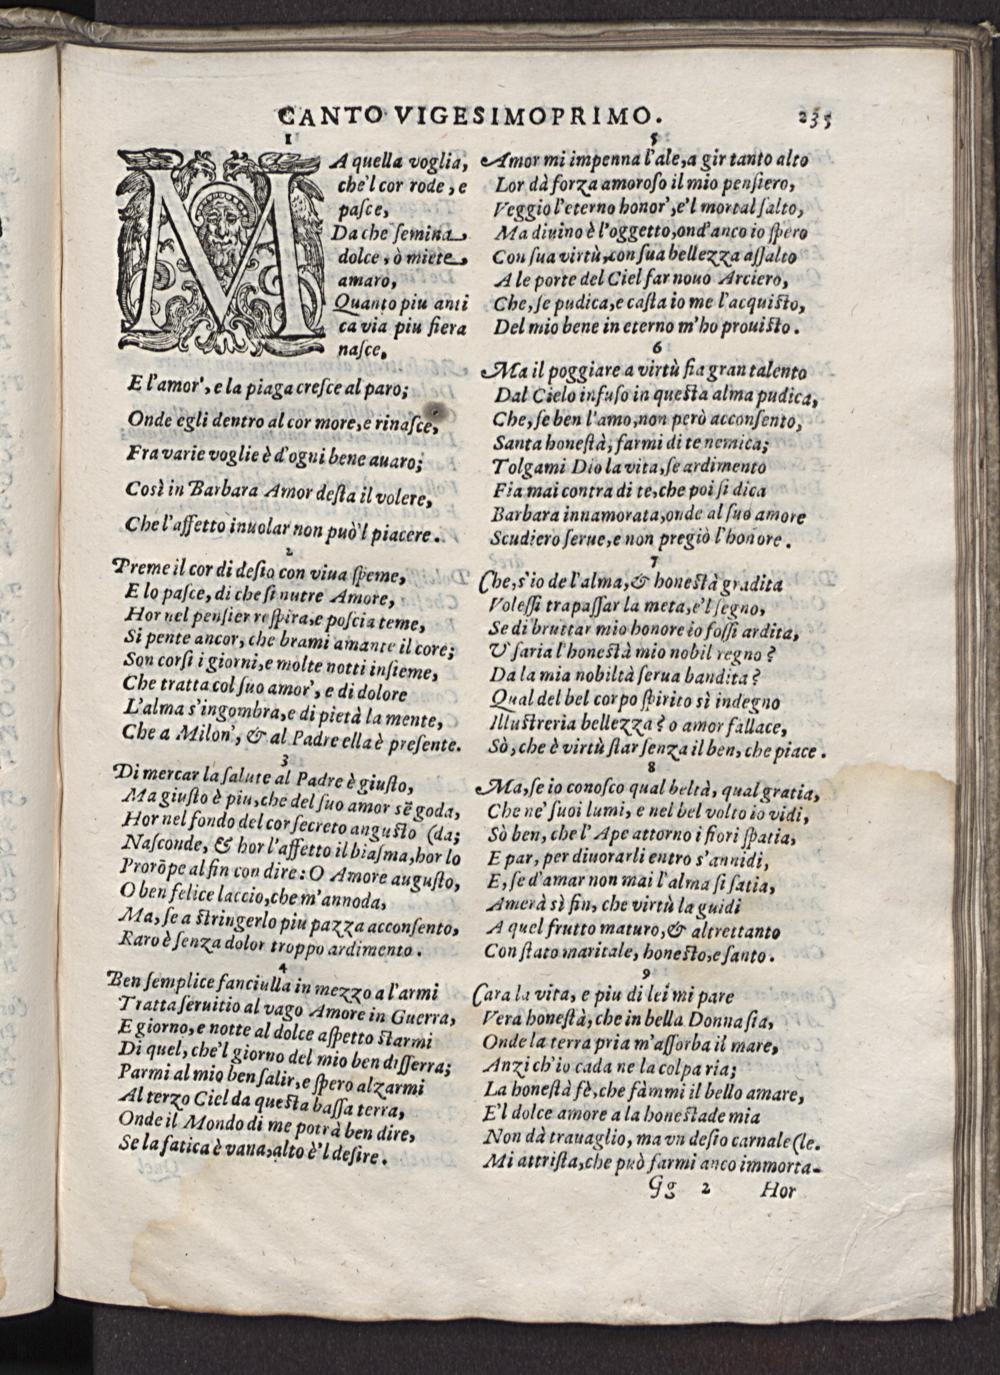 CANTO VIGESIMOPRIMO. 235
1
MA quella voglia,
che'l cor rode, e
pasce,
Da che semina
dolce, ò miete
amaro,
Quanto piu anti
ca via piu fiera
nasce,
E l'amor', e la piaga cresce al paro;
Onde egli dentro al cor more, e rinasce,
Fra varie voglie è d'ogni bene auaro;
Così in Barbara Amor desta il volere,
Che l'affetto inuolar non può'l piacere.
2
Preme il cor di desio con viua speme,
E lo pasce, di che si nutre Amore,
Hor nel pensier respira, e poscia teme,
Si pente ancor, che brami amante il core;
Son corsi i giorni, e molte notti insieme,
Che tratta col suo amor', e di dolore
L'alma s'ingombra, e di pietà la mente,
Che a Milon', & al Padre ella è presente.
3
Di mercar la salute al Padre è giusto,
Ma giusto è piu, che del suo amor sē goda,
Hor nel fondo del cor secreto angusto (da;
Nasconde, & hor l'affetto il biasma, hor lo
Prorōpe al fin con dire: O Amore augusto,
O ben felice laccio, che m'annoda,
Ma, se a stringerlo piu pazza acconsento,
Raro è senza dolor troppo ardimento.
4
Ben semplice fanciulla in mezzo a l'armi
Tratta seruitio al vago Amore in Guerra,
E giorno, e notte al dolce aspetto starmi
Di quel, che'l giorno del mio ben disserra;
Parmi al mio ben salir, e spero alzarmi
Al terzo Ciel da questa bassa terra,
Onde il Mondo di me potrà ben dire,
Se la fatica è vana, alto è'l desire.
5
Amor mi impenna l'ale, a gir tanto alto
Lor dà forza amoroso il mio pensiero,
Veggio l'eterno honor', e'l mortal salto,
Ma diuino è l'oggetto, ond'anco io spero
Con sua virtù, con sua bellezza assalto
A le porte del Ciel far nouo Arciero,
Che, se pudica, e casta io me l'acquisto,
Del mio bene in eterno m'ho prouisto.
6
Ma il poggiare a virtù fia gran talento
Dal Cielo infuso in questa alma pudica,
Che, se ben l'amo, non però acconsento,
Santa honestà, farmi di te nemica;
Tolgami Dio la vita, se ardimento
Fia mai contra di te, che poi si dica
Barbara innamorata, onde al suo amore
Scudiero serue, e non pregiò l'honore.
7
Che, s'io de l'alma, & honestà gradita
Volessi trapassar la meta, e'l segno,
Se di bruttar mio honore io fossi ardita,
V' saria l'honestà mio nobil regno?
Da la mia nobiltà serua bandita?
Qual del bel corpo spirito sì indegno
Illustreria bellezza? o amor fallace,
Sò, che è virtù star senza il ben, che piace.
8
Ma, se io conosco qual beltà, qual gratia,
Che ne' suoi lumi, e nel bel volto io vidi,
Sò ben, che l'Ape attorno i fiori spatia,
E par, per diuorarli entro s'annidi,
E, se d'amar non mai l'alma si satia,
Amerà sì fin, che virtù la guidi
A quel frutto maturo, & altrettanto
Con stato maritale, honesto, e santo.
9
Cara la vita, e piu di lei mi pare
Vera honestà, che in bella Donna sia,
Onde la terra pria m'assorba il mare,
Anzi ch'io cada ne la colpa ria;
La honestà fè, che fàmmi il bello amare,
E'l dolce amore a la honestade mia
Non dà trauaglio, ma vn desio carnale (le.
Mi attrista, che può farmi anco immorta-
Gg 2 Hor